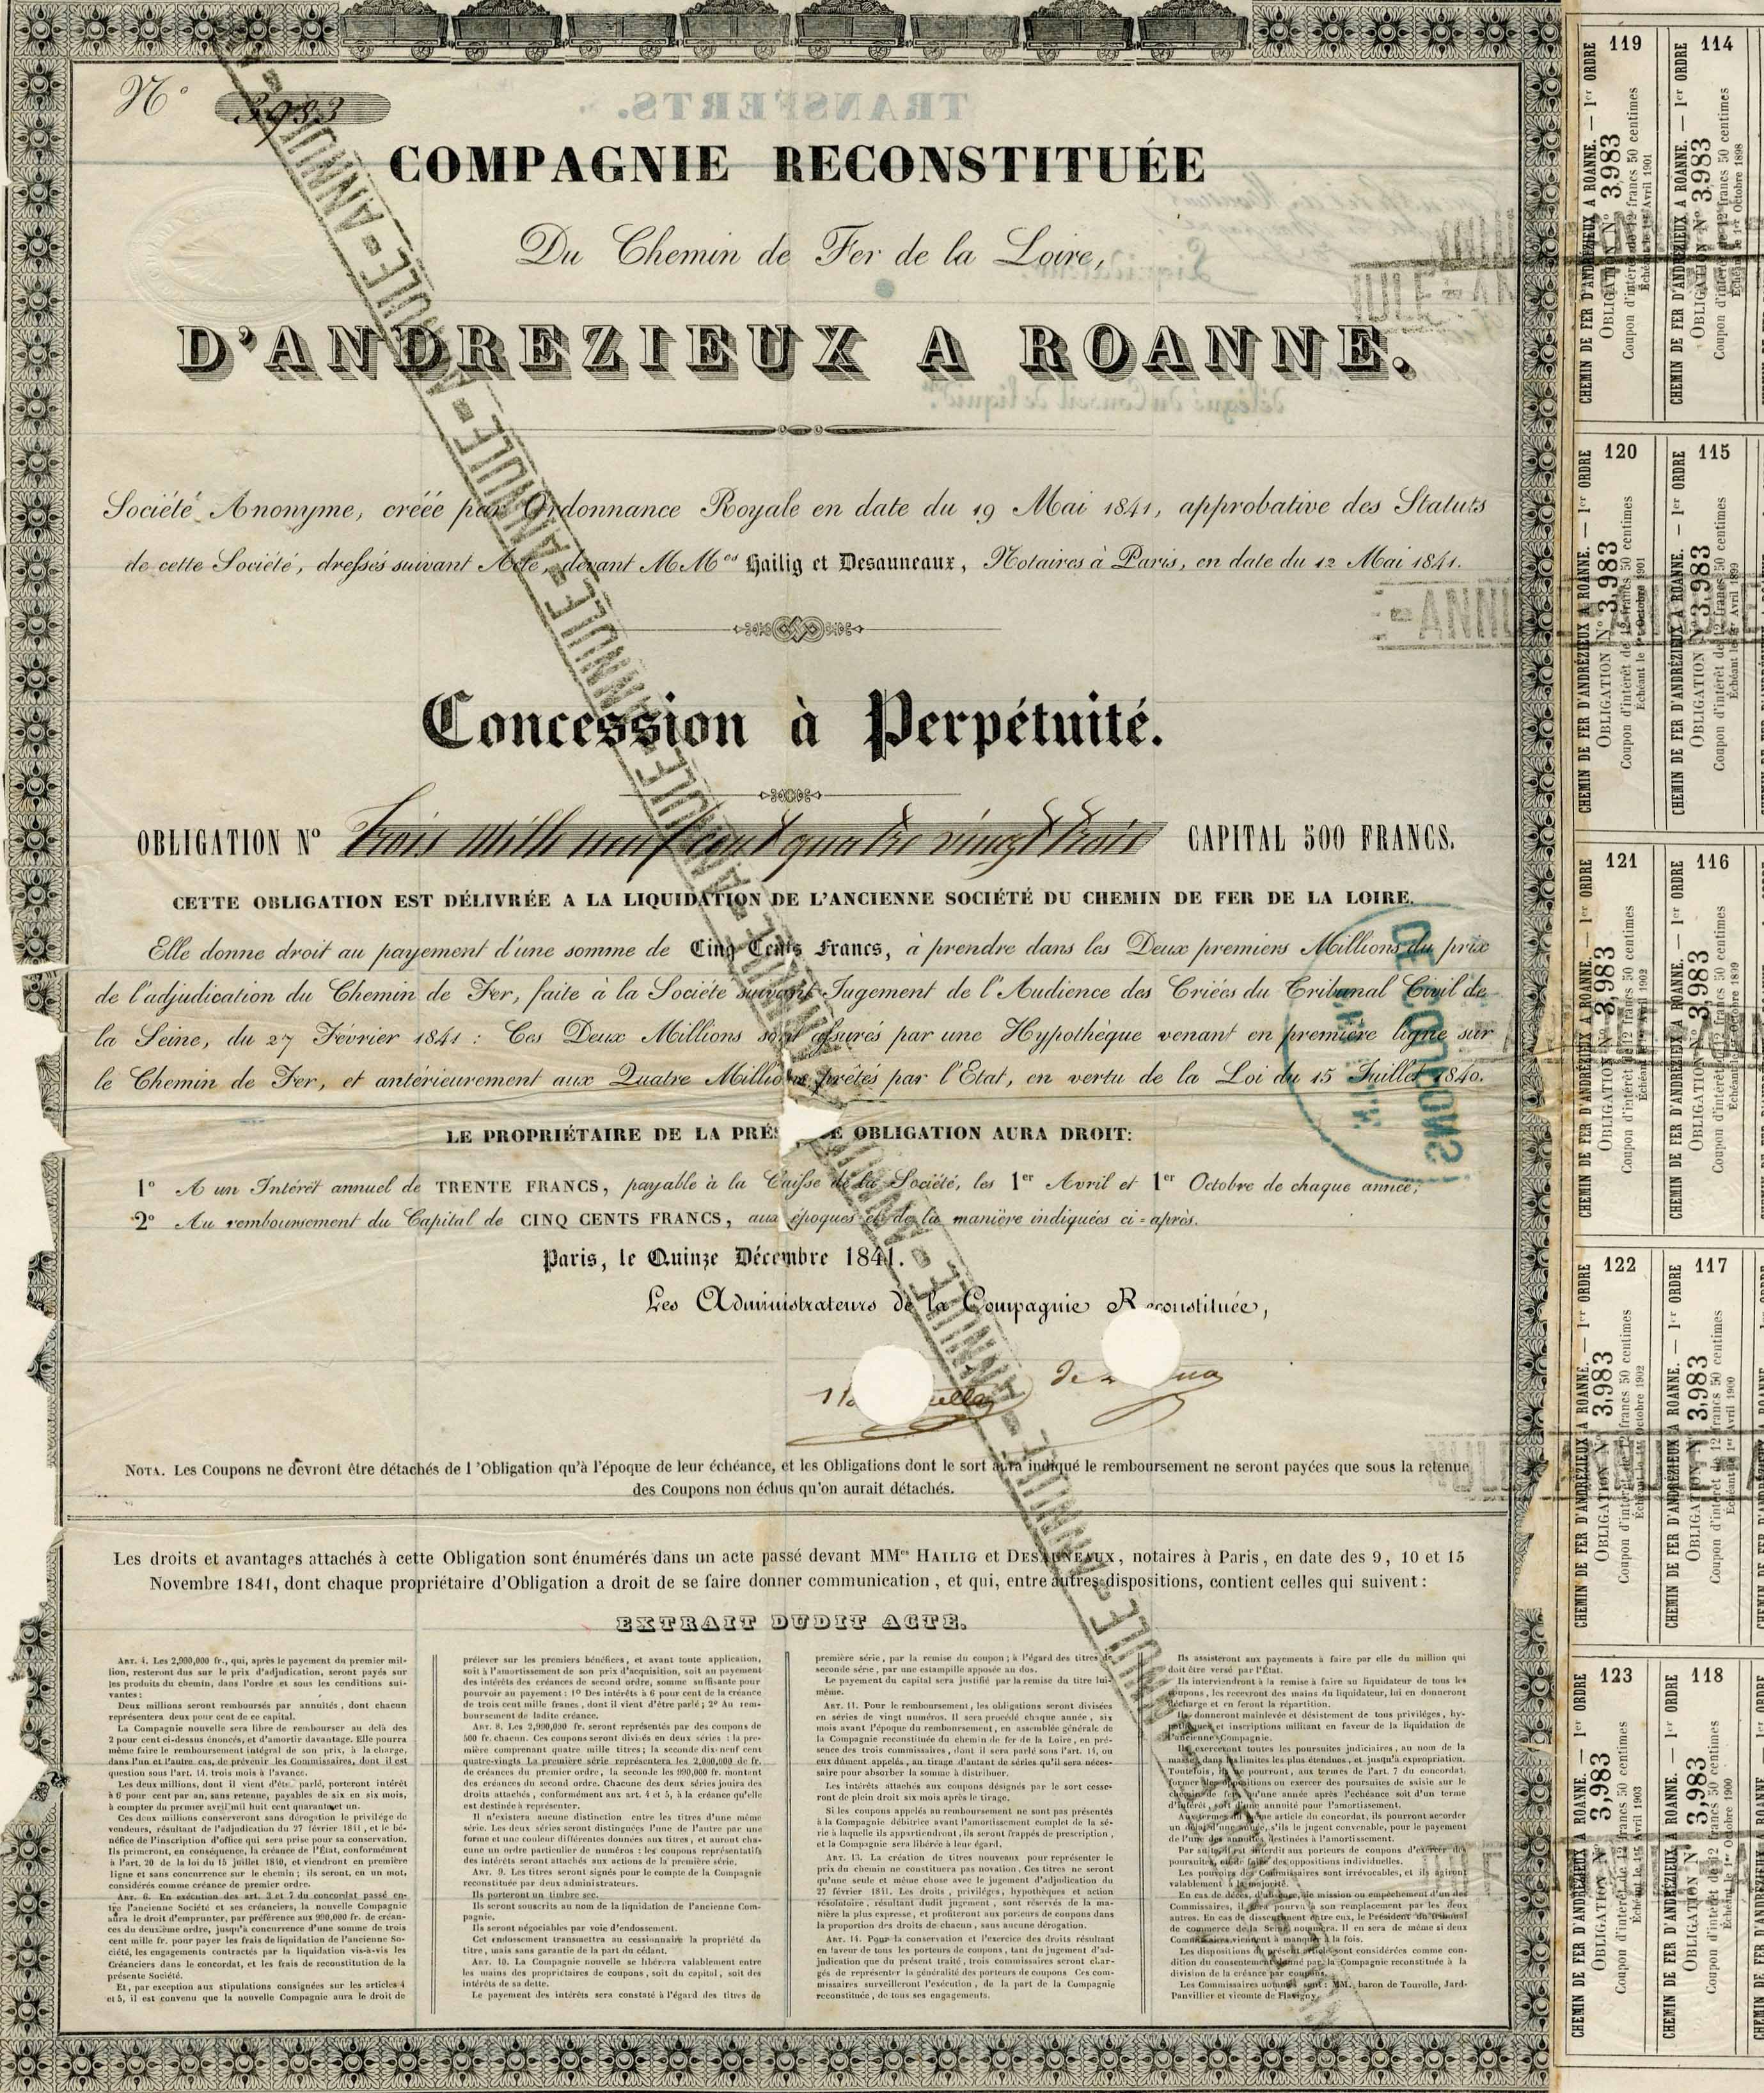 N° 3983
COMPAGNIE RECONSTITUÉE
Du Chemin de Fer de la Loire,
D'ANDREZIEUX A ROANNE.
Société Anonyme, créée par Ordonnance Royale en date du 19 Mai 1841, approbative des Statuts
de cette Société, dressés suivant Acte, devant MMes Hailig et Desauneaux, Notaires à Paris, en date du 12 Mai 1841.
Concession à Perpétuité.
OBLIGATION N° trois mille neuf cent quatre vingt trois CAPITAL 500 FRANCS.
CETTE OBLIGATION EST DÉLIVRÉE A LA LIQUIDATION DE L'ANCIENNE SOCIÉTÉ DU CHEMIN DE FER DE LA LOIRE.
Elle donne droit au payement d'une somme de Cinq Cents Francs, à prendre dans les Deux premiers Millions du prix
de l'adjudication du Chemin de Fer, faite à la Société suivant Jugement de l'Audience des Criées du Tribunal Civil de
la Seine, du 27 Février 1841 : Ces Deux Millions sont assurés par une Hypothèque venant en première ligne sur
le Chemin de Fer, et antérieurement aux Quatre Millions prêtés par l'Etat, en vertu de la Loi du 15 Juillet 1840.
LE PROPRIÉTAIRE DE LA PRÉS E OBLIGATION AURA DROIT:
1° A un Intérêt annuel de TRENTE FRANCS, payable à la Caisse de la Société, les 1er Avril et 1er Octobre de chaque année;
2° Au remboursement du Capital de CINQ CENTS FRANCS, aux époques et de la manière indiquées ci-après.
Paris, le Quinze Décembre 1841.
Les Administrateurs de la Compagnie Reconstituée,
NOTA. Les Coupons ne devront être détachés de l'Obligation qu'à l'époque de leur échéance, et les Obligations dont le sort aura indiqué le remboursement ne seront payées que sous la retenue
des Coupons non échus qu'on aurait détachés.
Les droits et avantages attachés à cette Obligation sont énumérés dans un acte passé devant MMes HAILIG et DESAUNEAUX, notaires à Paris, en date des 9, 10 et 15
Novembre 1841, dont chaque propriétaire d'Obligation a droit de se faire donner communication, et qui, entre autres dispositions, contient celles qui suivent :
EXTRAIT DUDIT ACTE.
ART. 4. Les 2,990,000 fr., qui, après le payement du premier mil-
lion, resteront dus sur le prix d'adjudication, seront payés sur
les produits du chemin, dans l'ordre et sous les conditions sui-
vantes :
Deux millions seront remboursés par annuités, dont chacun
représentera deux pour cent de ce capital.
La Compagnie nouvelle sera libre de rembourser au delà des
2 pour cent ci-dessus énoncés, et d'amortir davantage. Elle pourra
même faire le remboursement intégral de son prix, à la charge,
dans l'un et l'autre cas, de prévenir les Commissaires, dont il est
question sous l'art. 14, trois mois à l'avance.
Les deux millions, dont il vient d'être parlé, porteront intérêt
à 6 pour cent par an, sans retenue, payables de six en six mois,
à compter du premier avril mil huit cent quarante et un.
Ces deux millions conserveront sans dérogation le privilége de
vendeurs, résultant de l'adjudication du 27 février 1841, et le bé-
néfice de l'inscription d'office qui sera prise pour sa conservation.
Ils primeront, en conséquence, la créance de l'État, conformément
à l'art. 20 de la loi du 15 juillet 1840, et viendront en première
ligne et sans concurrence sur le chemin; ils seront, en un mot,
considérés comme créance de premier ordre.
ART. 6. En exécution des art. 3 et 7 du concordat passé en-
tre l'ancienne Société et ses créanciers, la nouvelle Compagnie
aura le droit d'emprunter, par préférence aux 990,000 fr. de créan-
ces du deuxième ordre, jusqu'à concurrence d'une somme de trois
cent mille fr. pour payer les frais de liquidation de l'ancienne So-
ciété, les engagements contractés par la liquidation vis-à-vis les
Créanciers dans le concordat, et les frais de reconstitution de la
présente Société.
Et, par exception aux stipulations consignées sur les articles 4
et 5, il est convenu que la nouvelle Compagnie aura le droit de
prélever sur les premiers bénéfices, et avant toute application,
soit à l'amortissement de son prix d'acquisition, soit au payement
des intérêts des créances de second ordre, somme suffisante pour
pourvoir au payement : 1° Des intérêts à 6 pour cent de la créance
de trois cent mille francs, dont il vient d'être parlé; 2° Au rem-
boursement de ladite créance.
ART. 8. Les 2,990,000 fr. seront représentés par des coupons de
500 fr. chacun. Ces coupons seront divisés en deux séries : la pre-
mière comprenant quatre mille titres; la seconde dix-neuf cent
quatre-vingts. La première série représentera les 2,000,000 de fr.
de créances du premier ordre, la seconde les 990,000 fr. montant
des créances du second ordre. Chacune des deux séries jouira des
droits attachés, conformément aux art. 4 et 5, à la créance qu'elle
est destinée à représenter.
Il n'existera aucune distinction entre les titres d'une même
série. Les deux séries seront distinguées l'une de l'autre par une
forme et une couleur différentes données aux titres, et auront cha-
cune un ordre particulier de numéros : les coupons représentatifs
des intérêts seront attachés aux actions de la première série.
ART. 9. Les titres seront signés pour le compte de la Compagnie
reconstituée par deux administrateurs.
Ils porteront un timbre sec.
Ils seront souscrits au nom de la liquidation de l'ancienne Com-
pagnie.
Ils seront négociables par voie d'endossement.
Cet endossement transmettra au cessionnaire la propriété du
titre, mais sans garantie de la part du cédant.
ART. 10. La Compagnie nouvelle se libérera valablement entre
les mains des propriétaires de coupons, soit du capital, soit des
intérêts de sa dette.
Le payement des intérêts sera constaté à l'égard des titres de
première série, par la remise du coupon; à l'égard des titres de
seconde série, par une estampille apposée au dos.
Le payement du capital sera justifié par la remise du titre lui-
même.
ART. 11. Pour le remboursement, les obligations seront divisées
en séries de vingt numéros. Il sera procédé chaque année, six
mois avant l'époque du remboursement, en assemblée générale de
la Compagnie reconstituée du chemin de fer de la Loire, en pré-
sence des trois commissaires, dont il sera parlé sous l'art. 14, ou
eux dûment appelés, au tirage d'autant de séries qu'il sera néces-
saire pour absorber la somme à distribuer.
Les intérêts attachés aux coupons désignés par le sort cesse-
ront de plein droit six mois après le tirage.
Si les coupons appelés au remboursement ne sont pas présentés
à la Compagnie débitrice avant l'amortissement complet de la sé-
rie à laquelle ils appartiendront, ils seront frappés de prescription,
et la Compagnie sera libérée à leur égard.
ART. 13. La création de titres nouveaux pour représenter le
prix du chemin ne constituera pas novation. Ces titres ne seront
qu'une seule et même chose avec le jugement d'adjudication du
27 février 1841. Les droits, priviléges, hypothèques et action
résolutoire, résultant dudit jugement, sont réservés de la ma-
nière la plus expresse, et profiteront aux porteurs de coupons dans
la proportion des droits de chacun, sans aucune dérogation.
ART. 14. Pour la conservation et l'exercice des droits résultant
en faveur de tous les porteurs de coupons, tant du jugement d'ad-
judication que du présent traité, trois commissaires seront char-
gés de représenter la généralité des porteurs de coupons. Ces com-
missaires surveilleront l'exécution, de la part de la Compagnie
reconstituée, de tous ses engagements.
Ils assisteront aux payements à faire par elle du million qui
doit être versé par l'État.
Ils interviendront à la remise à faire au liquidateur de tous les
coupons, les recevront des mains du liquidateur, lui en donneront
décharge et en feront la répartition.
Ils donneront mainlevée et désistement de tous priviléges, hy-
pothèques et inscriptions militant en faveur de la liquidation de
l'ancienne Compagnie.
Ils exerceront toutes les poursuites judiciaires, au nom de la
masse, dans les limites les plus étendues, et jusqu'à expropriation.
Toutefois, ils ne pourront, aux termes de l'art. 7 du concordat,
former des oppositions ou exercer des poursuites de saisie sur le
chemin de fer qu'une année après l'échéance soit d'un terme
d'intérêt, soit d'une annuité pour l'amortissement.
Aux termes du même article du concordat, ils pourront accorder
un délai d'une année, s'ils le jugent convenable, pour le payement
de l'une des annuités destinées à l'amortissement.
Par suite, il est interdit aux porteurs de coupons d'exercer des
poursuites, et de faire des oppositions individuelles.
Les pouvoirs des Commissaires sont irrévocables, et ils agiront
valablement à la majorité.
En cas de décès, d'absence, de mission ou empêchement d'un des
Commissaires, il sera pourvu son remplacement par les deux
autres. En cas de dissentiment entre eux, le Président du tribunal
de commerce de la Seine nommera. Il en sera de même si deux
Commissaires viennent à manquer à la fois.
Les dispositions du présent article sont considérées comme con-
dition du consentement donné par la Compagnie reconstituée à la
division de la créance par coupons.
Les Commissaires nommés sont : MM. baron de Tourolle, Jard-
Panvillier et vicomte de Flavigny.
119
CHEMIN DE FER D'ANDRÉZIEUX A ROANNE. — 1er ORDRE
OBLIGATION N° 3,983
Coupon d'intérêt de 12 francs 50 centimes
Échéant le 1er Avril 1901
114
CHEMIN DE FER D'ANDRÉZIEUX A ROANNE. — 1er ORDRE
OBLIGATION N° 3,983
Coupon d'intérêt de 12 francs 50 centimes
Échéant le 1er Octobre 1898
120
CHEMIN DE FER D'ANDRÉZIEUX A ROANNE. — 1er ORDRE
OBLIGATION N° 3,983
Coupon d'intérêt de 12 francs 50 centimes
Échéant le 1er Octobre 1901
115
CHEMIN DE FER D'ANDRÉZIEUX A ROANNE. — 1er ORDRE
OBLIGATION N° 3,983
Coupon d'intérêt de 12 francs 50 centimes
Échéant le 1er Avril 1899
121
CHEMIN DE FER D'ANDRÉZIEUX A ROANNE. — 1er ORDRE
OBLIGATION N° 3,983
Coupon d'intérêt de 12 francs 50 centimes
Échéant le 1er Avril 1902
116
CHEMIN DE FER D'ANDRÉZIEUX A ROANNE. — 1er ORDRE
OBLIGATION N° 3,983
Coupon d'intérêt de 12 francs 50 centimes
Échéant le 1er Octobre 1899
122
CHEMIN DE FER D'ANDRÉZIEUX A ROANNE. — 1er ORDRE
OBLIGATION N° 3,983
Coupon d'intérêt de 12 francs 50 centimes
Échéant le 1er Octobre 1902
117
CHEMIN DE FER D'ANDRÉZIEUX A ROANNE. — 1er ORDRE
OBLIGATION N° 3,983
Coupon d'intérêt de 12 francs 50 centimes
Échéant le 1er Avril 1900
123
CHEMIN DE FER D'ANDRÉZIEUX A ROANNE. — 1er ORDRE
OBLIGATION N° 3,983
Coupon d'intérêt de 12 francs 50 centimes
Échéant le 1er Avril 1903
118
CHEMIN DE FER D'ANDRÉZIEUX A ROANNE. — 1er ORDRE
OBLIGATION N° 3,983
Coupon d'intérêt de 12 francs 50 centimes
Échéant le 1er Octobre 1900
ANNULE-ANNULE-ANNULE-ANNULE-ANNULE
DE COUPONS
TRANSFERTS.